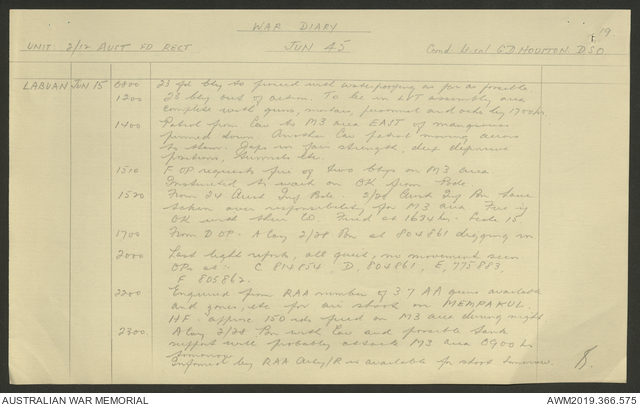 WAR DIARY
19.
UNIT 2/12 AUST FD REGT JUN 45 Comd Lt Col S D HOUSTON DSO
LABUAN JUN 15 0800 23 fd bty to proceed with waterproofing as far as possible.
1200 23 bty out of action. To be in LVT assembly area
complete with guns, personnel and by 1700 hrs
1400 Patrol from Cav to M3 area EAST of mangroves
pinned down. Another Cav patrol moving across
to them. Japs in fair strength, deep defensive
positions, tunnels etc.
1510 F OP requests fire of two btys on M3 area
Instructed to wait on OK from Bde.
1520 From 24 Aust Inf Bde. 2/28 Aust Inf Bn have
taken over responsibility for M3 area. Fire is
OK with their CO. Fired at 1634 hrs. Scale 15
1700 From D OP. A Coy 2/28 Bn at 804861 digging in
2000 Last light reports, all quiet, no movement seen
OPs at:- C 814854, D, 804861, E, 775883
F 805862.
2200 Enquired from RAA number of 3.7 AA guns available
and zones, etc for air shoot on MEMPAKUL.
HF approx 150 rds fired on M3 area during night
2300 A Coy 2/28 Bn with Cav and possible tank
support will probably attack M3 area 0900 hrs
tomorrow
Informed by RAA Arty/R is available for shoot tomorrow.
AUSTRALIAN WAR MEMORIAL
AWM2019.366.575